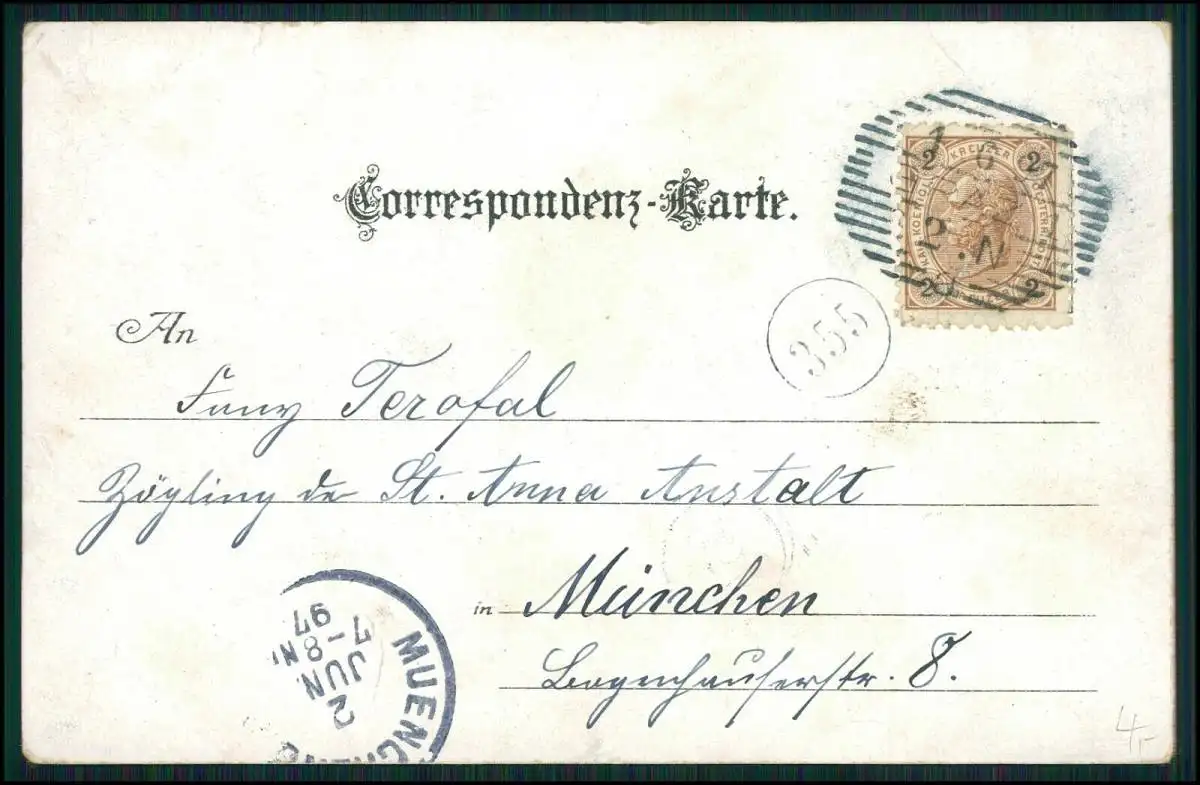 Correspondenz-Karte.
2 KREUZER 2
2 2
355
An
Fany Terofal
Zögling der St. Anna Anstalt
in München
Bogenhauserstr. 8.
MUENCHEN
2
JUN
7
-8 N.
97
4,-